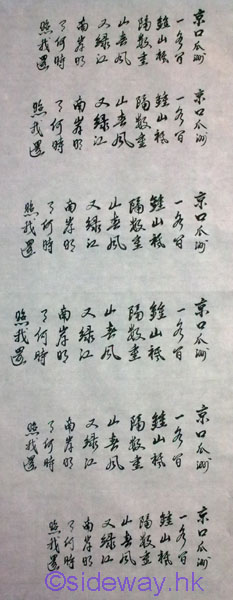 京口瓜洲
一水間
鍾山祇
隔數重
山春風
又綠江
南岸明
月何時
照我還
京口瓜洲
一水間
鍾山祇
隔數重
山春風
又綠江
南岸明
月何時
照我還
京口瓜洲
一水間
鍾山祇
隔數重
山春風
又綠江
南岸明
月何時
照我還
京口瓜洲
一水間
鍾山祇
隔數重
山春風
又綠江
南岸明
月何時
照我還
京口瓜洲
一水間
鍾山祇
隔數重
山春風
又綠江
南岸明
月何時
照我還
京口瓜洲
一水間
鍾山祇
隔數重
山春風
又綠江
南岸明
月何時
照我還
©sideway.hk